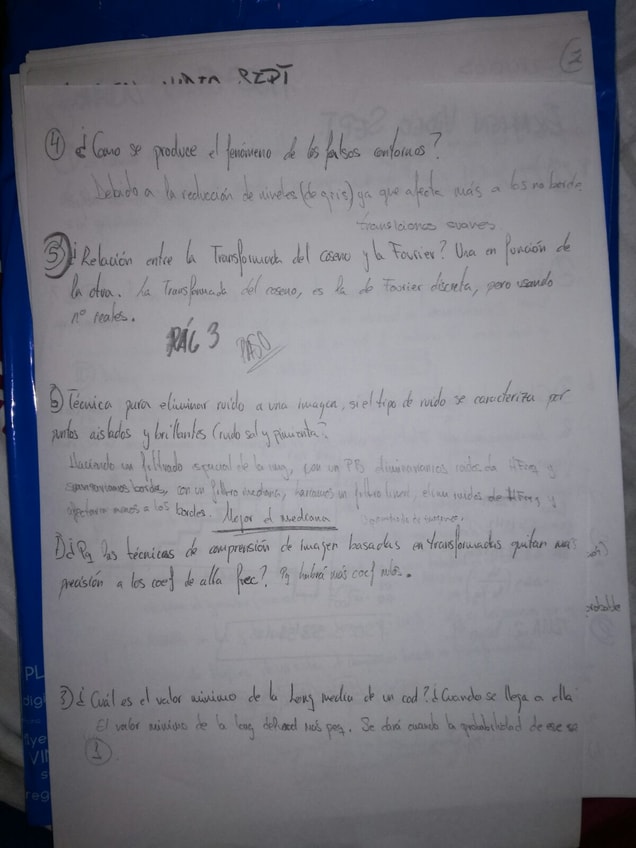 SEPT
2
④ ¿Como se produce el fenómeno de los falsos contornos?
Debido a la reducción de niveles (de gris) ya que afecta más a los no borde
transiciones suaves.
⑤ ¿Relación entre la Transformada del coseno y la Fourier? Una en función de
la otra. La Transformada del coseno, es la de Fourier discreta, pero usando
nº reales.
PÁG 3
PASO
6) Técnica para eliminar ruido a una imagen, si el tipo de ruido se caracteriza por
puntos aislados y brillantes (ruido sal y pimienta?
Haciendo un filtrado espacial de la img, con un PB eliminaríamos ruidos de HFreq y
bordes, con un filtro mediana, haríamos un filtro lineal, elim ruidos de HFreq y
afectaría menos a los bordes. Mejor el mediana
1) ¿Pq las técnicas de comprensión de imagen basadas en transformadas quitan más
precisión a los coef de alta frec? Pq habrá más coef nulos.
probable
3) ¿Cuál es el valor mínimo de la long media de un cod? ¿Cuando se llega a ella
El valor mínimo de la long del cod más peq. Se dará cuando la probabilidad de ese se
1
PL
digi
VI
reg